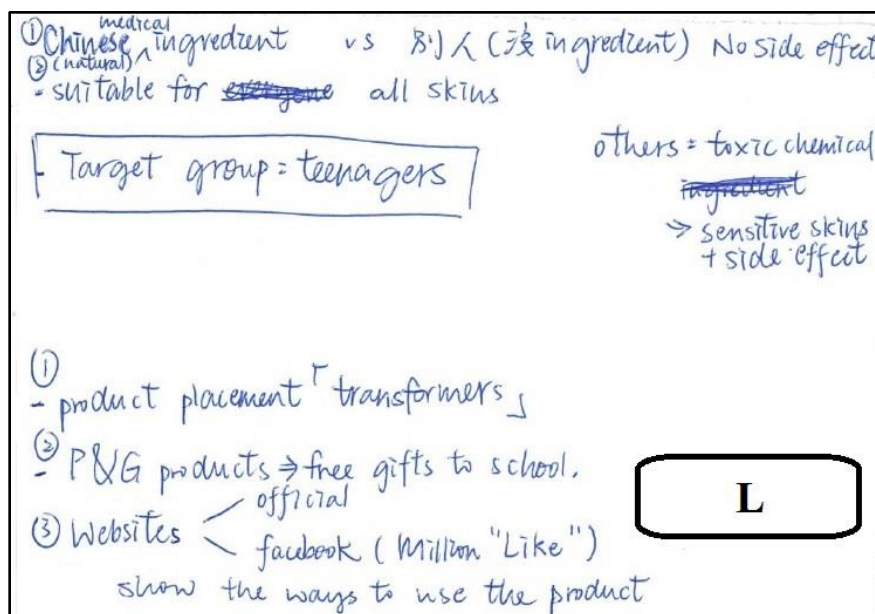 ① Chinese medical ingredient vs 別人 (沒 ingredient) No side effect
② (natural)
- suitable for everyone all skins
- Target group = teenagers
others = toxic chemical
ingredient
→ sensitive skins
+ side effect
①
- product placement「transformers」
②
- P&G products ⇒ free gifts to school.
③ Websites
official
facebook (Million "Like")
show the ways to use the product
L